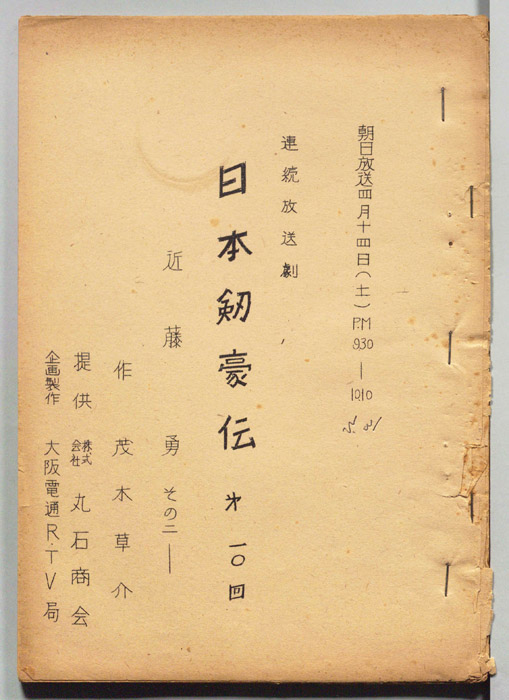 朝日放送四月十四日(土)PM930—1010
連続放送劇
日本剣豪伝 才一〇回
近藤勇 その二—
作 茂木草介
提供 株式会社 丸石商会
企画製作 大阪電通R・TV局